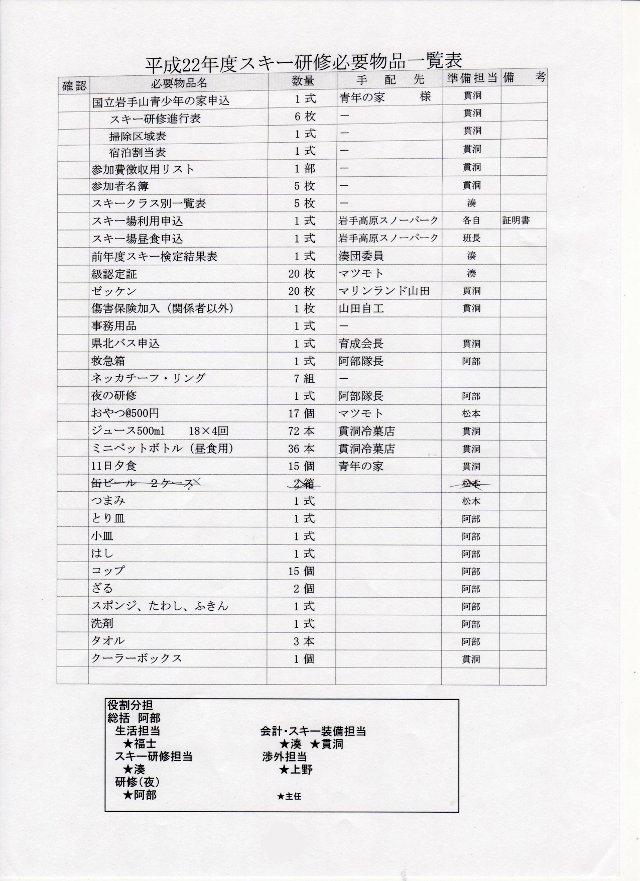 平成22年度スキー研修必要物品一覧表
確認 必要物品名 数量 手配先 準備担当 備考
国立岩手山青少年の家申込 1 式 青年の家 様 貫洞
スキー研修進行表 6 枚 − 貫洞
掃除区域表 1 式 − 貫洞
宿泊割当表 1 式 − 貫洞
参加費徴収用リスト 1 部 − 貫洞
参加者名簿 5 枚 − 貫洞
スキークラス別一覧表 5 枚 − 湊
スキー場利用申込 1 式 岩手高原スノーパーク 各自 証明書
スキー場昼食申込 1 式 岩手高原スノーパーク 班長
前年度スキー検定結果表 1 式 湊団委員 湊
級認定証 20 枚 マツモト 湊
ゼッケン 20 枚 マリンランド山田 貫洞
傷害保険加入（関係者以外） 1 枚 山田自工 貫洞
事務用品 1 式 −
県北バス申込 1 式 育成会長 貫洞
救急箱 1 式 阿部隊長 阿部
ネッカチーフ・リング 7 組 −
夜の研修 1 式 阿部隊長 阿部
おやつ@500円 17 個 マツモト 松本
ジュース500ml 18×4回 72 本 貫洞冷菓店 貫洞
ミニペットボトル（昼食用） 36 本 貫洞冷菓店 貫洞
11日夕食 15 個 青年の家 貫洞
缶ビール 2ケース 2 箱 松本
つまみ 1 式 松本
とり皿 1 式 阿部
小皿 1 式 阿部
はし 1 式 阿部
コップ 15 個 阿部
ざる 2 個 阿部
スポンジ、たわし、ふきん 1 式 阿部
洗剤 1 式 阿部
タオル 3 本 阿部
クーラーボックス 1 個 貫洞
役割分担
総括 阿部
生活担当 会計・スキー装備担当
★福士 ★湊 ★貫洞
スキー研修担当 渉外担当
★湊 ★上野
研修（夜）
★阿部 ★主任